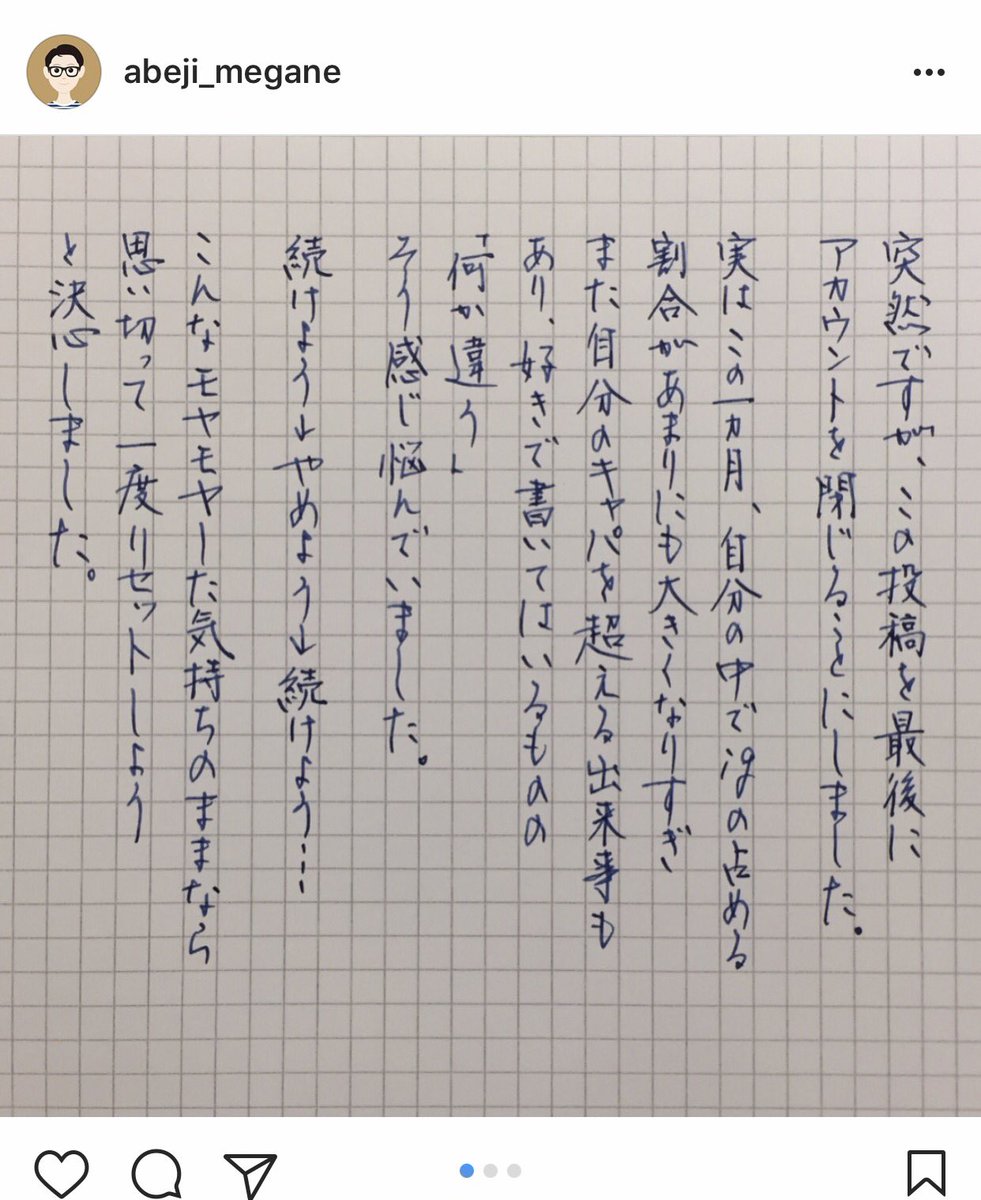 abeji_megane
突然ですが、この投稿を最後に
アカウントを閉じることにしました。
実はこの一カ月、自分の中でigの占める
割合があまりにも大きくなりすぎ
また自分のキャパを超える出来事も
あり、好きで書いてはいるものの
「何か違う」
そう感じ悩んでいました。
続けよう→やめよう→続けよう…
こんなモヤモヤした気持ちのままなら
思い切って一度リセットしよう
と決心しました。